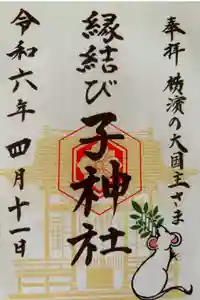 奉拝 横濱の大国主さま
縁結び 子神社
令和六年 四月十一日